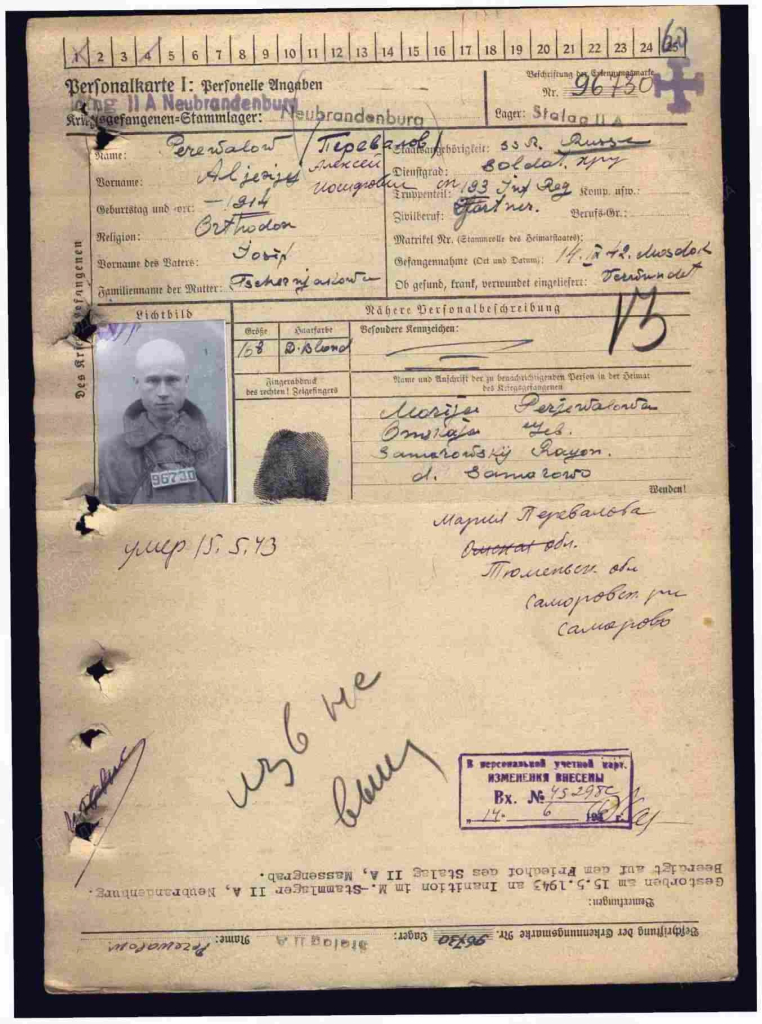 1 2 3 4 5 6 7 8 9 10 11 12 13 14 15 16 17 18 19 20 21 22 23 24 25
Personalkarte I: Personelle Angaben
Beschriftung der Erkennungsmarke
Nr. 96730
II A Neubrandenburg
Kriegsgefangenen-Stammlager: Neubrandenburg
Lager: Stalag II A
Name: Perewalow / Перевалов
Vorname: Алексей
Geburtstag und -ort: – 1914
Religion: Orthodox
Vorname des Vaters: Iosif
Familienname der Mutter:
Staatsangehörigkeit: Russe
Dienstgrad: Soldat
Truppenteil: 193 Inf Reg Komp. usw.:
Zivilberuf: Gärtner. Berufs-Gr.:
Matrikel Nr. (Stammrolle des Heimatstaates):
Gefangennahme (Ort und Datum): 14. 42. Mosdok
Ob gesund, krank, verwundet eingeliefert: Verwundet
Des Kriegsgefangenen
Lichtbild
Nähere Personalbeschreibung
Größe Haarfarbe Besondere Kennzeichen:
168 D. Blond
Fingerabdruck
des rechten! Zeigefingers
Name und Anschrift der zu benachrichtigenden Person in der Heimat
des Kriegsgefangenen
96730
Marija Perjewalowa
Omskaja
Samarowskij Rayon.
d. Samarowo
Wenden!
умер 15.5.43
Мария Перевалова
Омская обл.
Тюменьск. обл
Саморовск. рн
Саморово
изв не
выш
В персональной учетной карт.
ИЗМЕНЕНИЯ ВНЕСЕНЫ
Вх. №
„14. 6
Beschriftung der Erkennungsmarke Nr. 96730 Lager: Stalag II A Name: Perewalow.
Bemerkungen:
Gestorben am 15.5.1943 an Inanition im M.-Stammlager II A, Neubrandenburg.
Beerdigt auf dem Friedhof des Stalag II A, Massengrab.